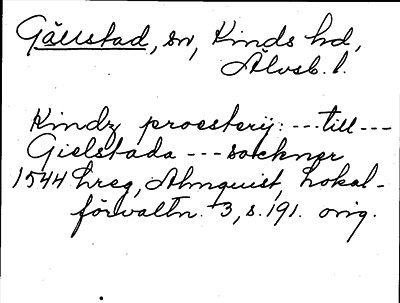 Gällstad, sn, Kinds hd,
Älvsb. l.
Kindz proesterij: --- till ---
Gielstada --- sockner
1544 hreg, Almquist, Lokal-
förvaltn. 3, s. 191. orig.